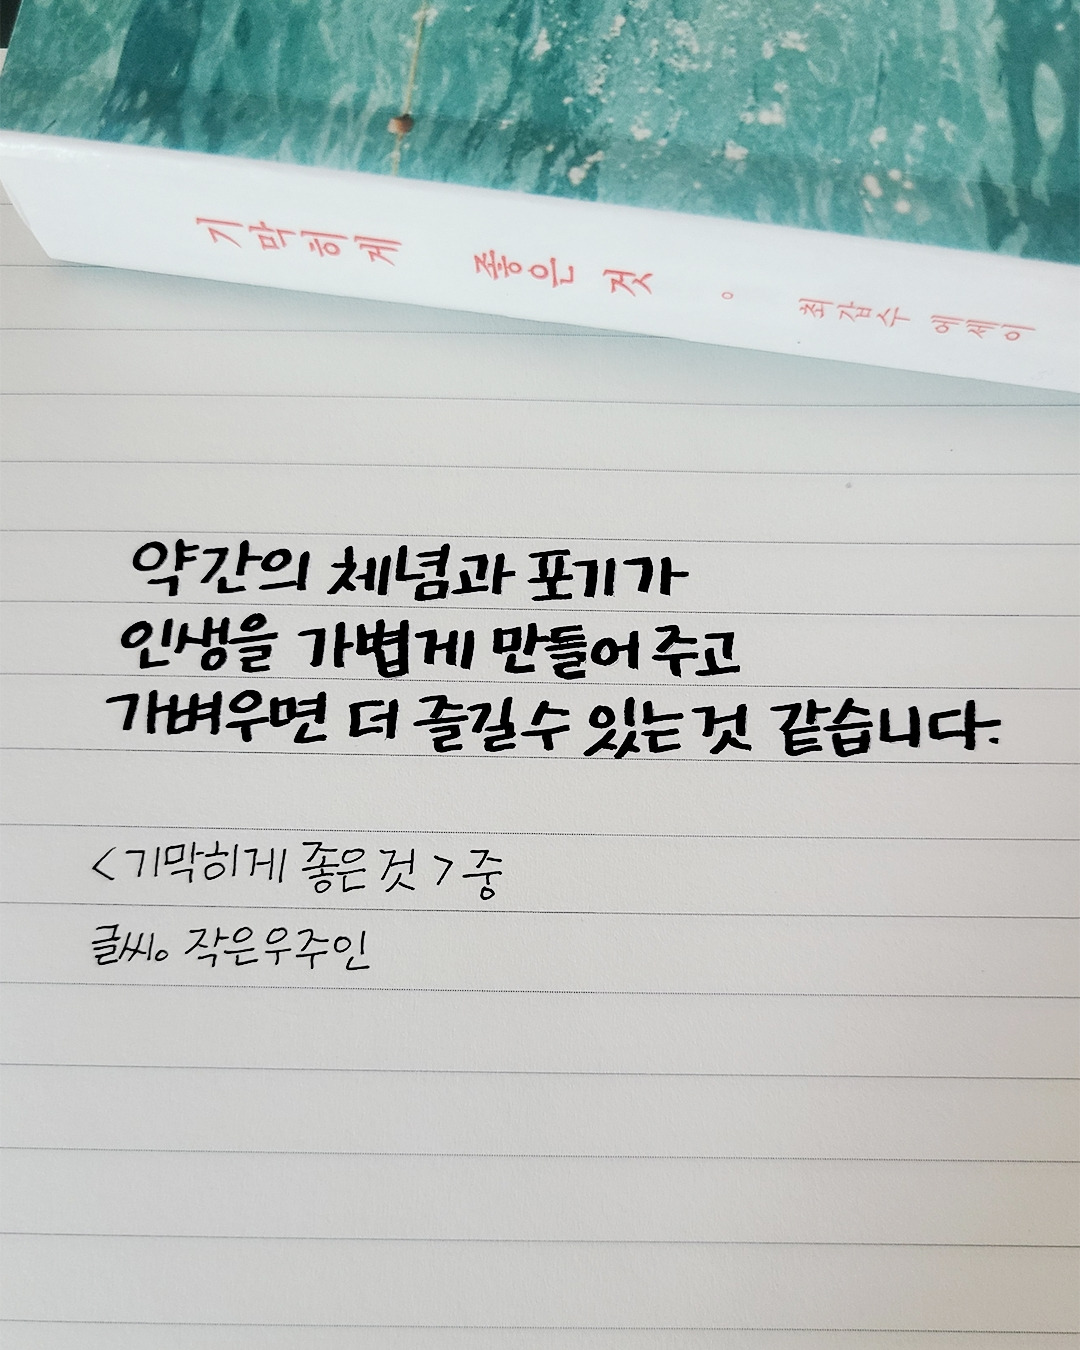 기막히게 좋은 것 。 최갑수 에세이
약간의 체념과 포기가
인생을 가볍게 만들어 주고
가벼우면 더 즐길 수 있는 것 같습니다.
<기막히게 좋은 것> 중
글씨。 작은우주인